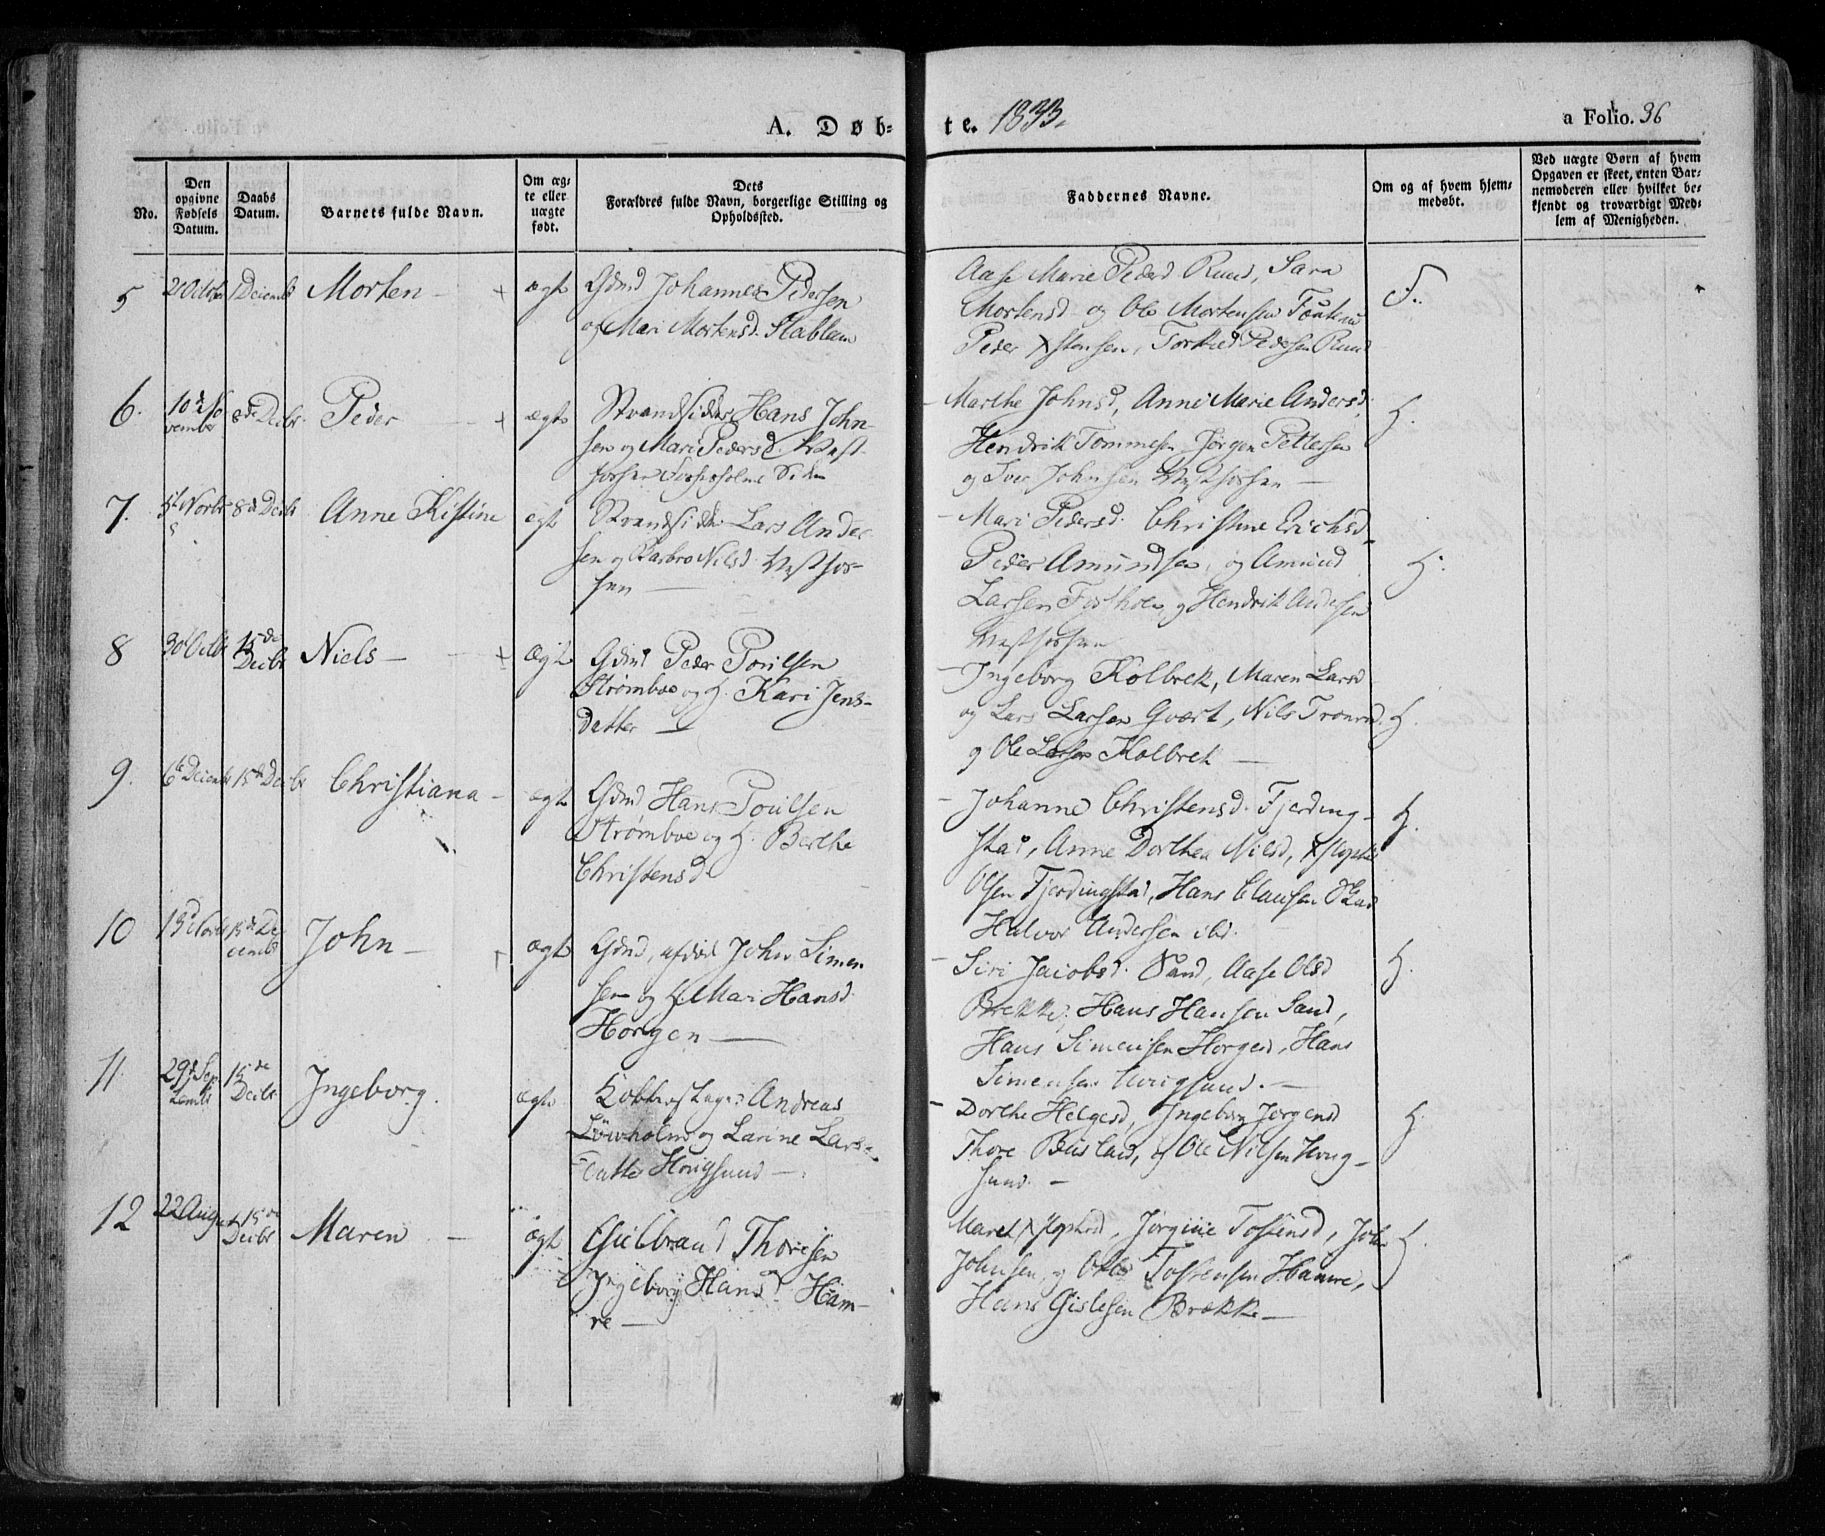 A. Døb-te. 1833.
a Folio. 36
No.
Den opgivne Fødsels Datum.
Daabs Datum.
Barnets fulde Navn.
Om ægte eller uægte født.
Dets Forældres fulde Navn, borgerlige Stilling og Opholdssted.
Faddernes Navne.
Om og af hvem hjemmedøbt.
Ved uægte Børn af hvem Opgaven er skeet, enten Barnemoderen eller hvilket bekjendt og troværdigt Medlem af Menigheden.
5
Morten
ægt
Gdmd Johannes Pedersen
og Mari Mortensd. Stablum
Aase Marie Pedersd Ruud, Sara
Mortensd og Ole Mortensen
Peder Xstensen, Torkild Pedersen Ruud
6.
10de November
8de Decbr.
Peder
ægte
Strandsidder Hans John-
sen og Mari Pedersd. Vest-
fossen Fossesholms Siden
Marthe Johnsd, Anne Marie Andersd,
Hendrik Tommesen Jørgen Pettersen
og Iver Johnsen Vestfossen
H.
7.
8de Decbr
Anne Kistine
ægt
Strandsidder Lars Ander-
sen og Barbro Nilsd. Vestfos-
sen
Mari Pedersd. Christine Erichsd,
Peder Amundsen, og Amund
Larsen og Hendrik Andersen
Vestfossen
H.
8
30 Octbr
15de Decbr
Niels
ægt
Gdmd Peder Poulsen
Strømboe og H. Kari Jens-
datter
Ingeborg Kolbrek, Maren Larsd
og Lars Larsen Qvært, Nils
og Ole Larsen Kolbrek
H.
9.
6te Decembr
15de Decbr
Christiana
ægt
Gdmd Hans Poulsen
Strømboe og H. Berthe
Christensd
Johanne Christensd. Fjerding-
stad, Anne Dorthea Nilsd, Xstopher
Olsen Fjerdingstad, Hans Clausen
Halvor Andersen ibd.
H.
10
15de Decemb
John
ægt
Gdmd, afdød John Simen-
sen og H. Mari Hansd.
Horgen
Siri Jacobsd. Sand, Aase Olsd
Brekke, Hans Hansen Sand,
Hans Simensen Horgen, Hans
Simensen
H.
11.
29de Septembr
15de Decbr
Ingeborg.
ægte
Andreas
Løwholm og Larine Lars-
datter Hougsund
Dorthe Helgesd, Ingeborg Jørgensd
Thore Buslaid, og Ole Nilsen Houg-
sund.
H
12
22 August
15de Decbr
Maren
ægt
Gulbrand Thoresen
Ingeborg Hansd Ham-
re
Maret Xstophsd, Jørgine Tostensd, John
Johnsen, og Ole Tostensen Hamre,
Hans Gislesen Brække
H.